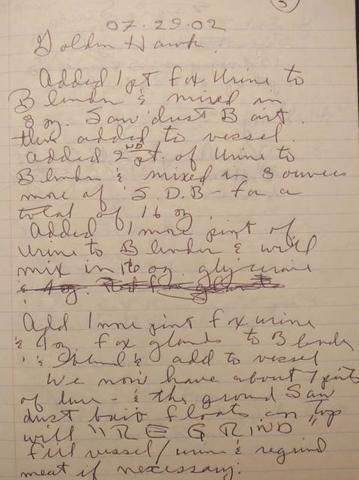 3
07.29.02
Golden Hawk
Added 1 pt fox Urine to
Blender & mixed in
8 oz. Saw dust Bait.
then added to vessel.
Added 2nd pt. of Urine to
Blender & mixed in 8 ounces
more of S.D.B - for a
total of 16 oz
Added 1 more pint of
Urine to Blender & will
mix in 16 oz. glycerine
& 4 oz. Red fox glands
Add 1 more pint fox urine
& 4 oz. fox glands to Blender
& blend & add to vessel
We now have about 7 pints
of lure - & the ground Saw
dust bait floats on top
will "RE GRIND"
fill vessel / urine & regrind
meat if necessary.